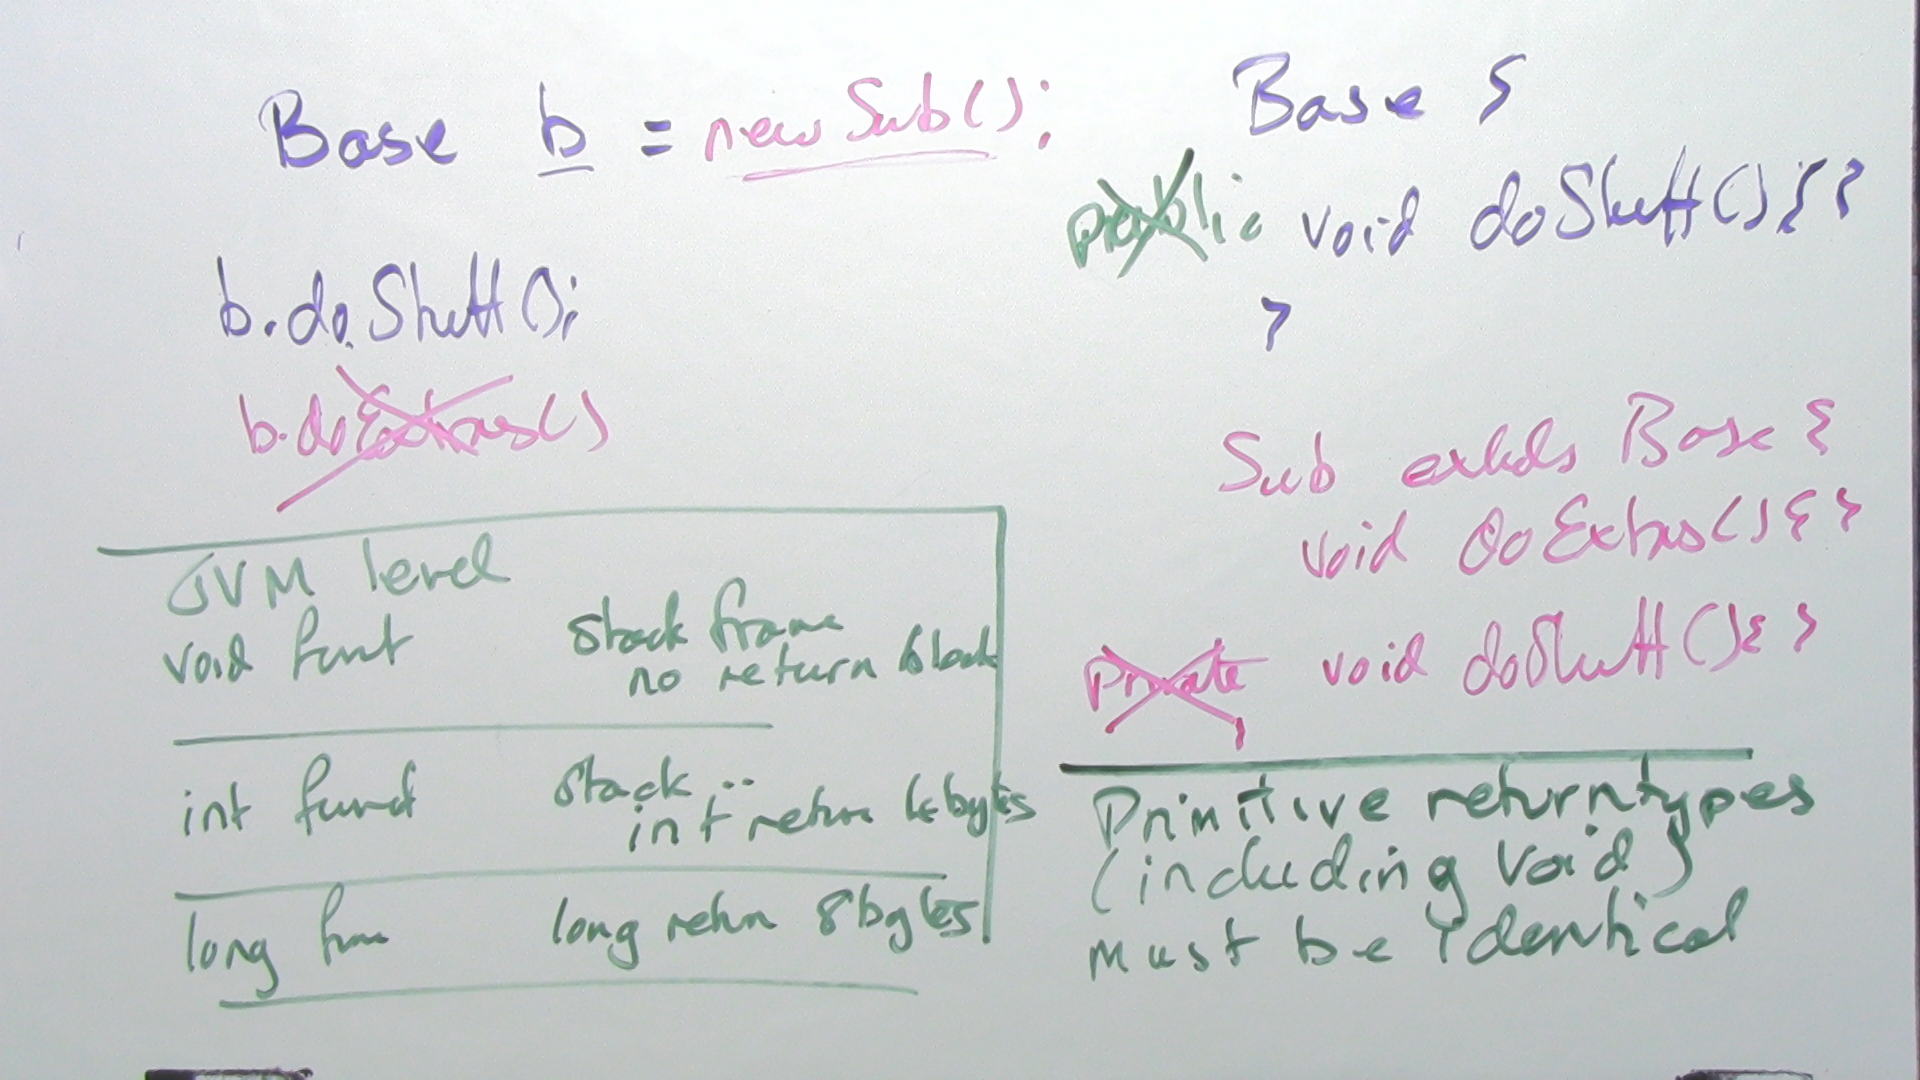 Base b = new Sub();
b.doStuff();
b.doExtras()
JVM level
void funt stack frame
no return block
int funct stack ..
int return 4 bytes
long fun long return 8 bytes
Base {
public void doStuff() { }
}
Sub extends Base {
void doExtras() { }
private void doStuff() { }
Primitive return types
(including void)
must be identical